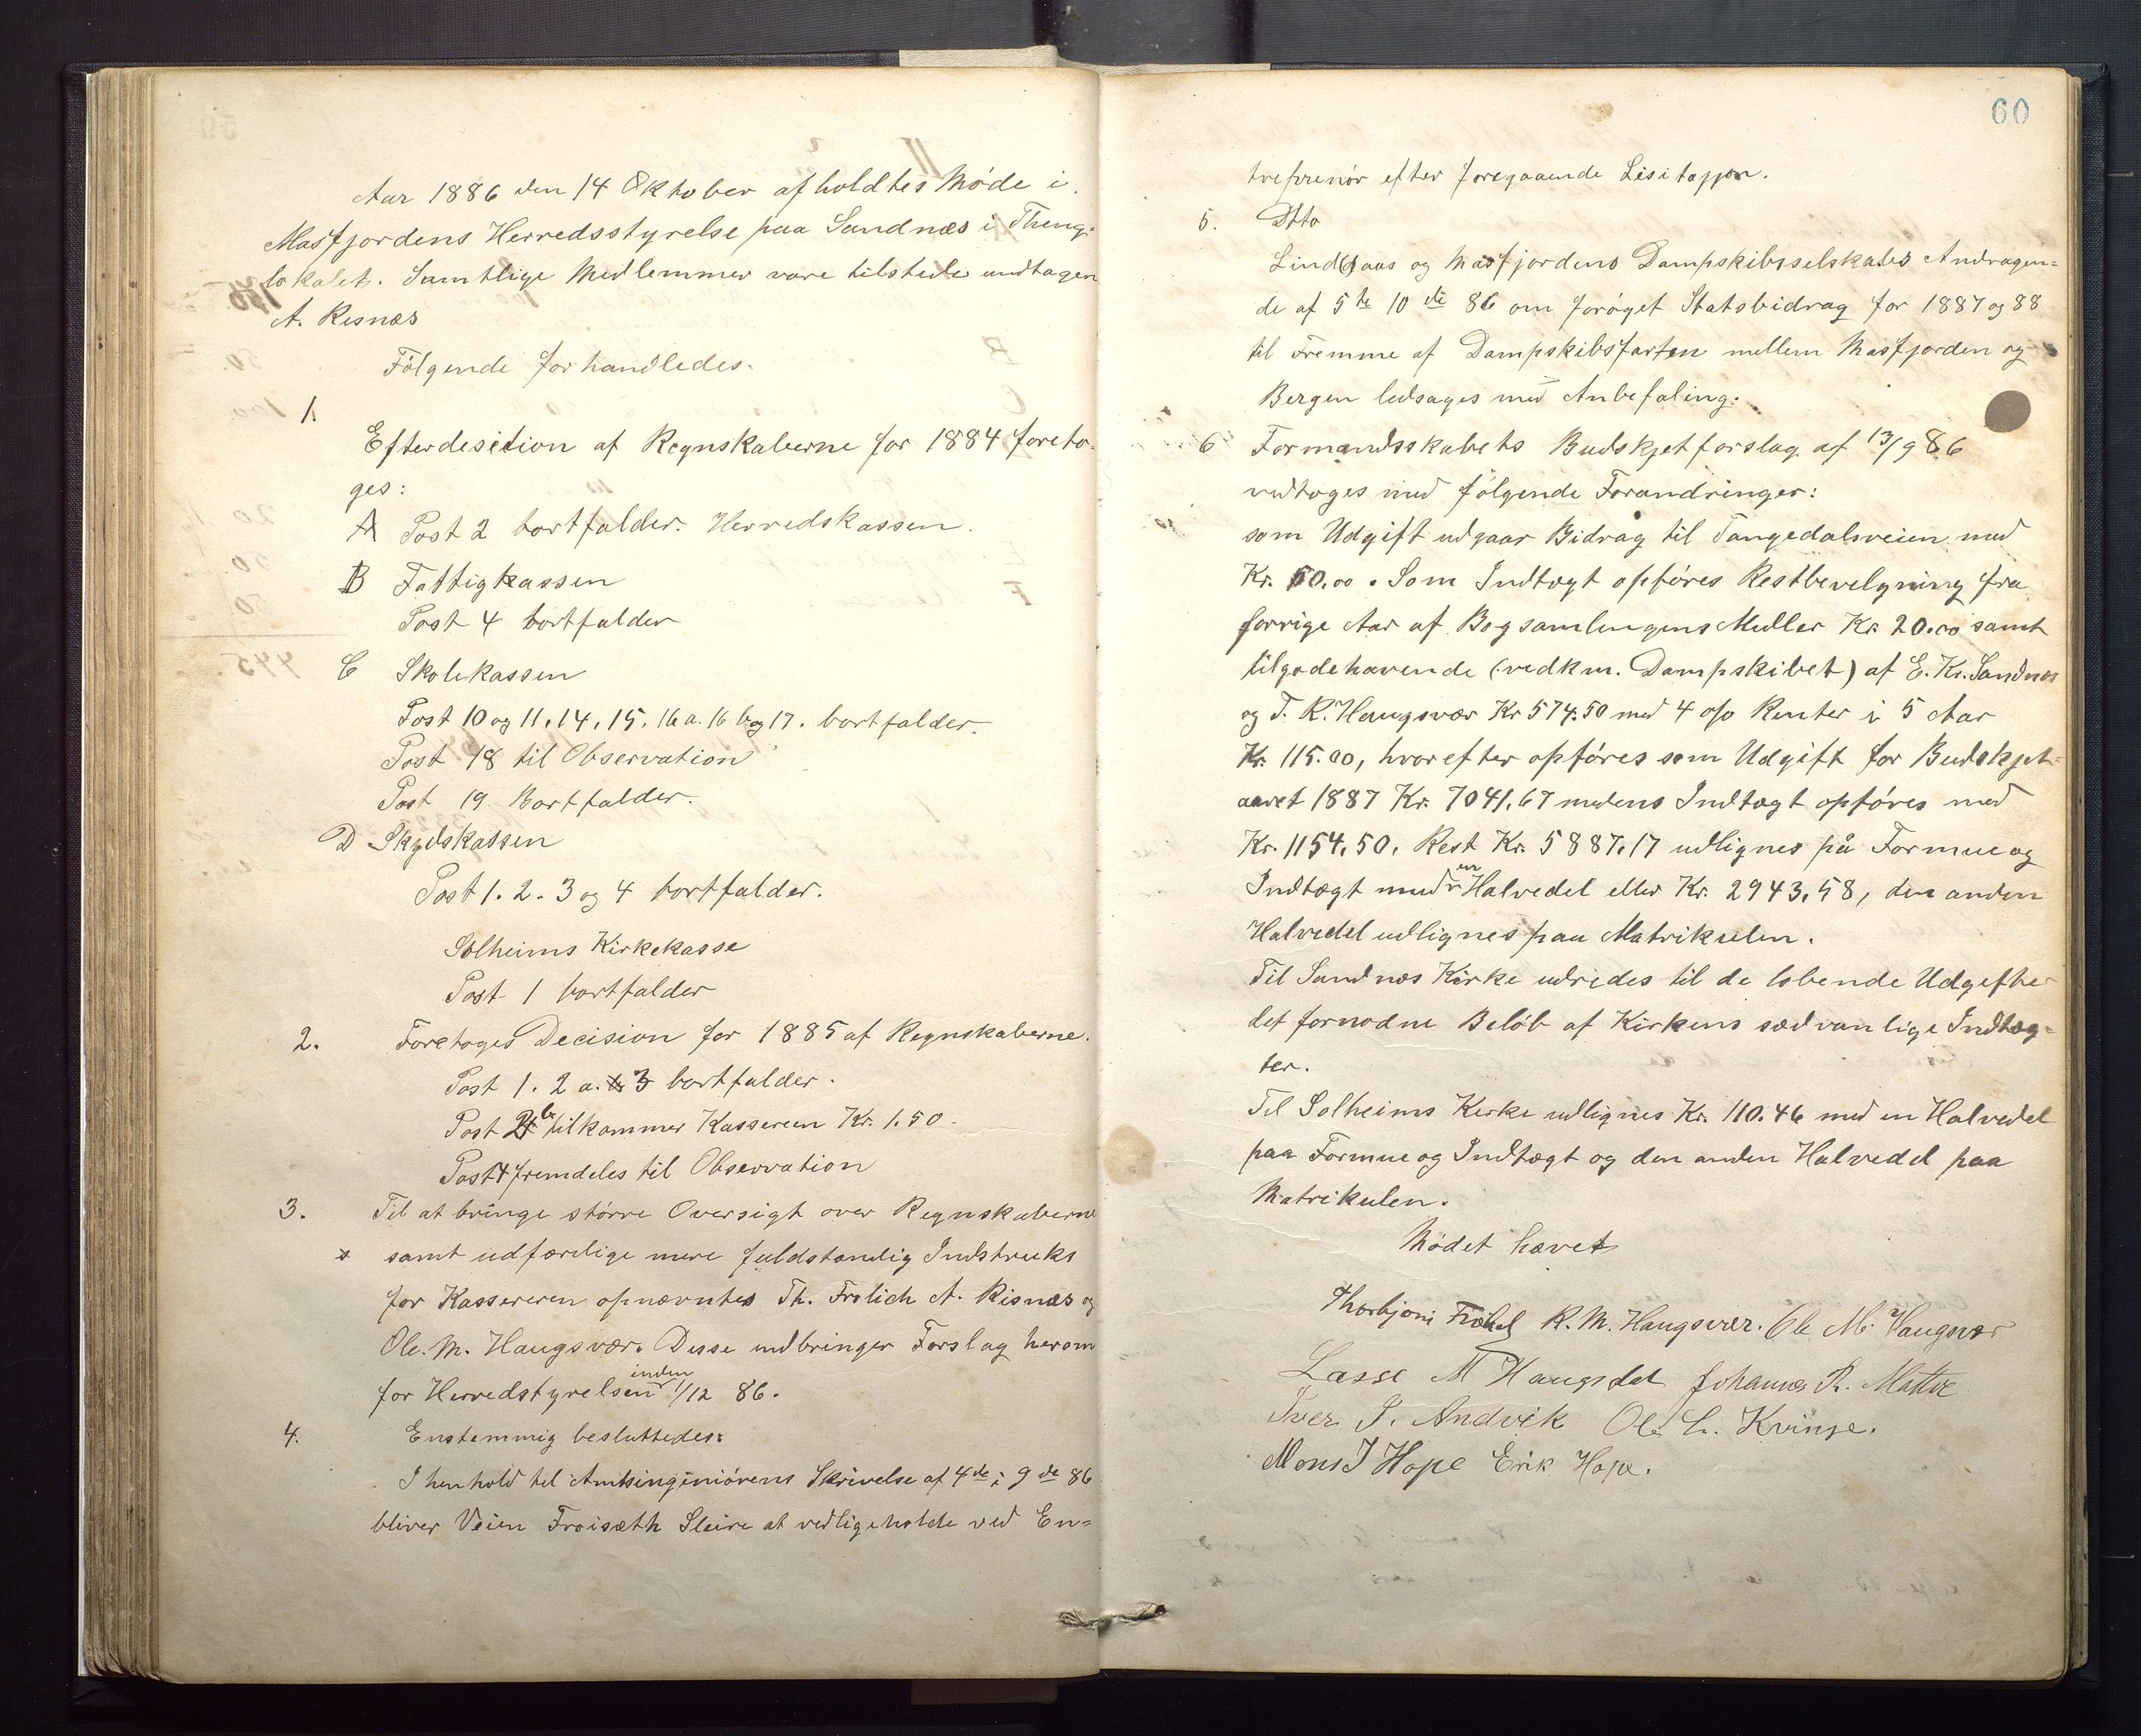 Aar 1886 den 14 Oktober afholdtes Møde i
Masfjordens Herredsstyrelse paa Sandnæs i Thing-
lokalet. Samtlige Medlemmer vare tilstede undtagen
A. Risnæs
Følgende forhandledes.
1.
Efterdesition af Regnskaberne for 1884 foreto-
ges:
A Post 2 bortfalder. Herredskassen.
B Fattigkassen
Post 4 bortfalder
C Skolekassen
Post 10 og 11, 14, 15, 16 a. 16 b og 17. bortfalder.
Post 18 til Observation
Post 19 Bortfalder.
D Skydskassen
Post 1. 2. 3 og 4 bortfalder.
Solheims Kirkekasse
Post 1 bortfalder
2. Foretoges Decision for 1885 af Regnskaberne.
Post 1. 2 a. 3 bortfalder.
Post 2 b tilkommer Kassereren Kr. 1.50.
Post 4 fremdeles til Observation
3. Til at bringe større Oversigt over Regnskaberne
samt udfærdige mere fuldstændig Instruks
for Kassereren opnævntes Th. Frølich A. Risnæs og
Ole. M. Haugsvær. Disse indbringer Forslag herom
for Herredstyrelsen inden 1/12 86.
4. Enstemmig besluttedes:
I henhold til Amtsingeniørens Skrivelse af 4de i 9de 86
bliver Veien Froisæth Sleire at vedligeholde ved En=
60
treprenør efter foregaaende Lisitasjon.
5. Dtto
Lindaas og Masfjordens Dampskibsselskabs Andragen=
de af 5te 10de 86 om forøget Statsbidrag for 1887 og 88
til Fremme af Dampskibsfarten mellem Masfjorden og
Bergen ledsages med Anbefaling.
6 Formandsskabets Budskjetforslag af 13/9 86
vedtoges med følgende Forandringer:
som Udgift udgaar Bidrag til Tangedalsveien med
Kr. 50.00. Som Indtægt opføres Restbevilgning fra
forrige Aar af Bogsamlingens Midler Kr 20.00 samt
tilgodehavende (vedkm. Dampskibet) af E. Kr. Sandnæs
og T. R. Haugsvær Kr 574.50 med 4 o/o Renter i 5 Aar
Kr. 115.00, hvorefter opføres som Udgift for Budskjet-
aaret 1887 Kr. 7041.67 medens Indtægt opføres med
Kr. 1154.50. Rest Kr. 5887.17 udlignes på Formue og
Indtægt med en Halvedel eller Kr. 2943.58, den anden
Halvedel udlignes paa Matrikulen.
Til Sandnæs Kirke udredes til de løbende Udgifter
det fornødne Beløb af Kirkens sædvanlige Indtæg-
ter.
Til Solheims Kirke udlignes Kr. 110.46 med en Halvedel
paa Formue og Indtægt og den anden Halvedel paa
Matrikulen.
Mødet hævet
Thorbjørn Frølich R. M. Haugsvær. Ole M. Haugsvær
Lasse M Haugsdal Johannes R. Matre
Iver I. Andvik Ole L. Kvinge.
Mons I Hope Erik Hope.